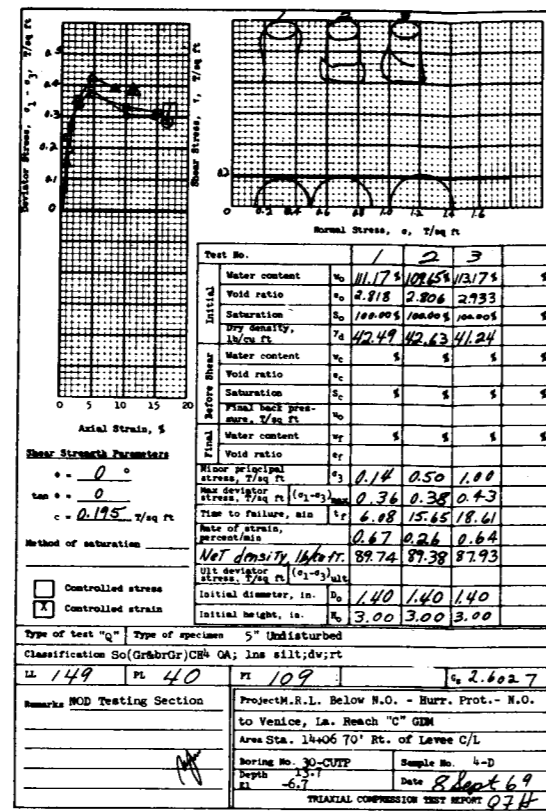 Deviator Stress, σ1 - σ3, T/sq ft
0.4
0.3
0.2
0.1
0
0 5 10 15 20
Axial Strain, %
Shear Stress, τ, T/sq ft
1 2 3
0 0.2 0.4 0.6 0.8 1.0 1.2 1.4 1.6
Normal Stress, σ, T/sq ft
Shear Strength Parameters
φ = 0 °
tan φ = 0
c = 0.195 T/sq ft
Method of saturation
Controlled stress
X Controlled strain
Test No. 1 2 3
Initial
Water content wo 111.17 % 109.65 % 113.17 % %
Void ratio eo 2.818 2.806 2.933
Saturation So 100.00 % 100.00 % 100.00 % %
Dry density, lb/cu ft γd 42.49 42.63 41.24
Before Shear
Water content wc % % % %
Void ratio ec
Saturation Sc % % % %
Final back pressure, T/sq ft uo
Final
Water content wf % % % %
Void ratio ef
Minor principal stress, T/sq ft σ3 0.14 0.50 1.00
Max deviator stress, T/sq ft (σ1-σ3)max 0.36 0.38 0.43
Time to failure, min tf 6.08 15.65 18.61
Rate of strain, percent/min 0.67 0.26 0.64
Net density, lb/cu ft. 89.74 89.38 87.93
Ult deviator stress, T/sq ft (σ1-σ3)ult
Initial diameter, in. Do 1.40 1.40 1.40
Initial height, in. Ho 3.00 3.00 3.00
Type of test "Q" Type of specimen 5" Undisturbed
Classification So(Gr&brGr)CH4 OA; lns silt;dw;rt
LL 149 PL 40 PI 109 Gs 2.6027
Remarks NOD Testing Section
Project M.R.L. Below N.O. - Hurr. Prot.- N.O.
to Venice, La. Reach "C" GDM
Area Sta. 14+06 70' Rt. of Levee C/L
Boring No. 30-CUTP Sample No. 4-D
Depth 13.7
El -6.7 Date 8 Sept 69
TRIAXIAL COMPRESSION TEST REPORT